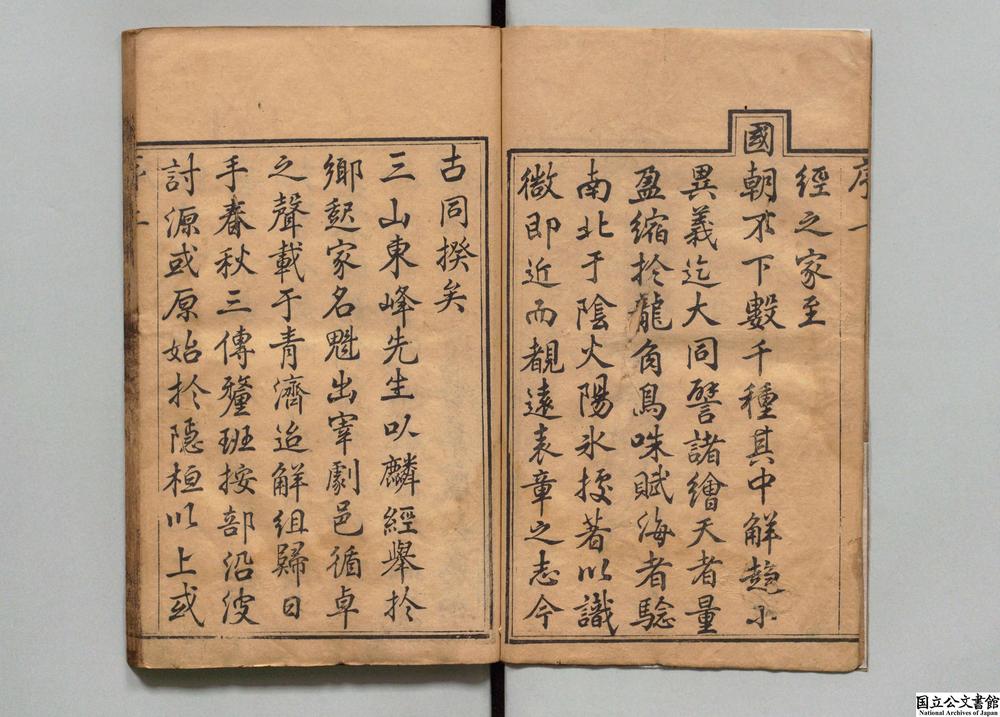 序一
經之家至
國朝不下數千種其中解趨小
異義迄大同譬諸繪天者量
盈縮於龍角鳥咮賦海者驗
南北于陰火陽氷援著以識
微即近而覩遠表章之志今
古同揆矣
三山東峰先生以麟經舉於
鄉起家名魁出宰劇邑循卓
之聲載于青濟迨解組歸日
手春秋三傳釐班按部沿波
討源或原始於隱桓以上或
国立公文書館
National Archives of Japan